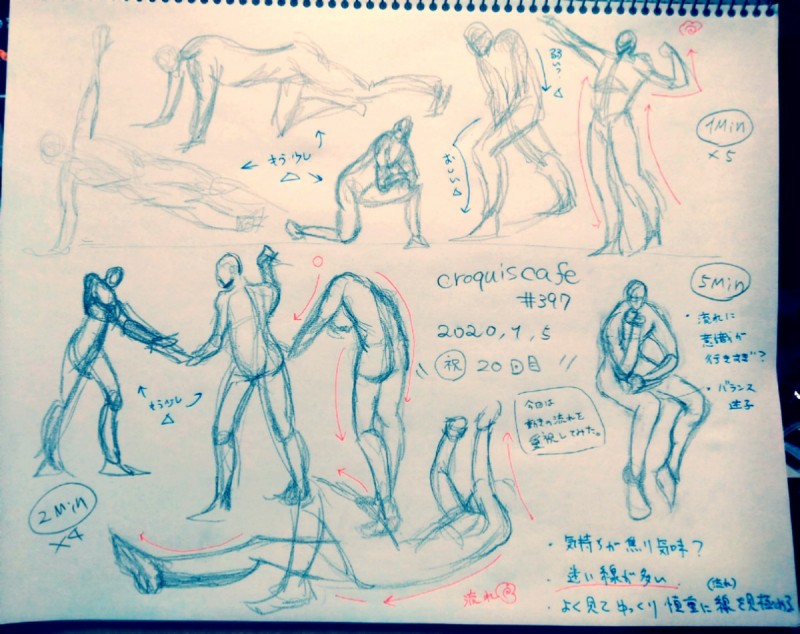 弱いっ△
1Min
×5
もう少し
△
おしい△
croquiscafe
#397
2020,1,5
祝 20回目
5Min
・流れに
意識が
行きすぎ?
・バランス
迷子
もう少し
△
今回は
動きの流れを
重視してみた。
2Min
×4
流れ
・気持ちが焦り気味?
・迷い線が多い
(流れ)
・よく見てゆっくり慎重に線を見極める